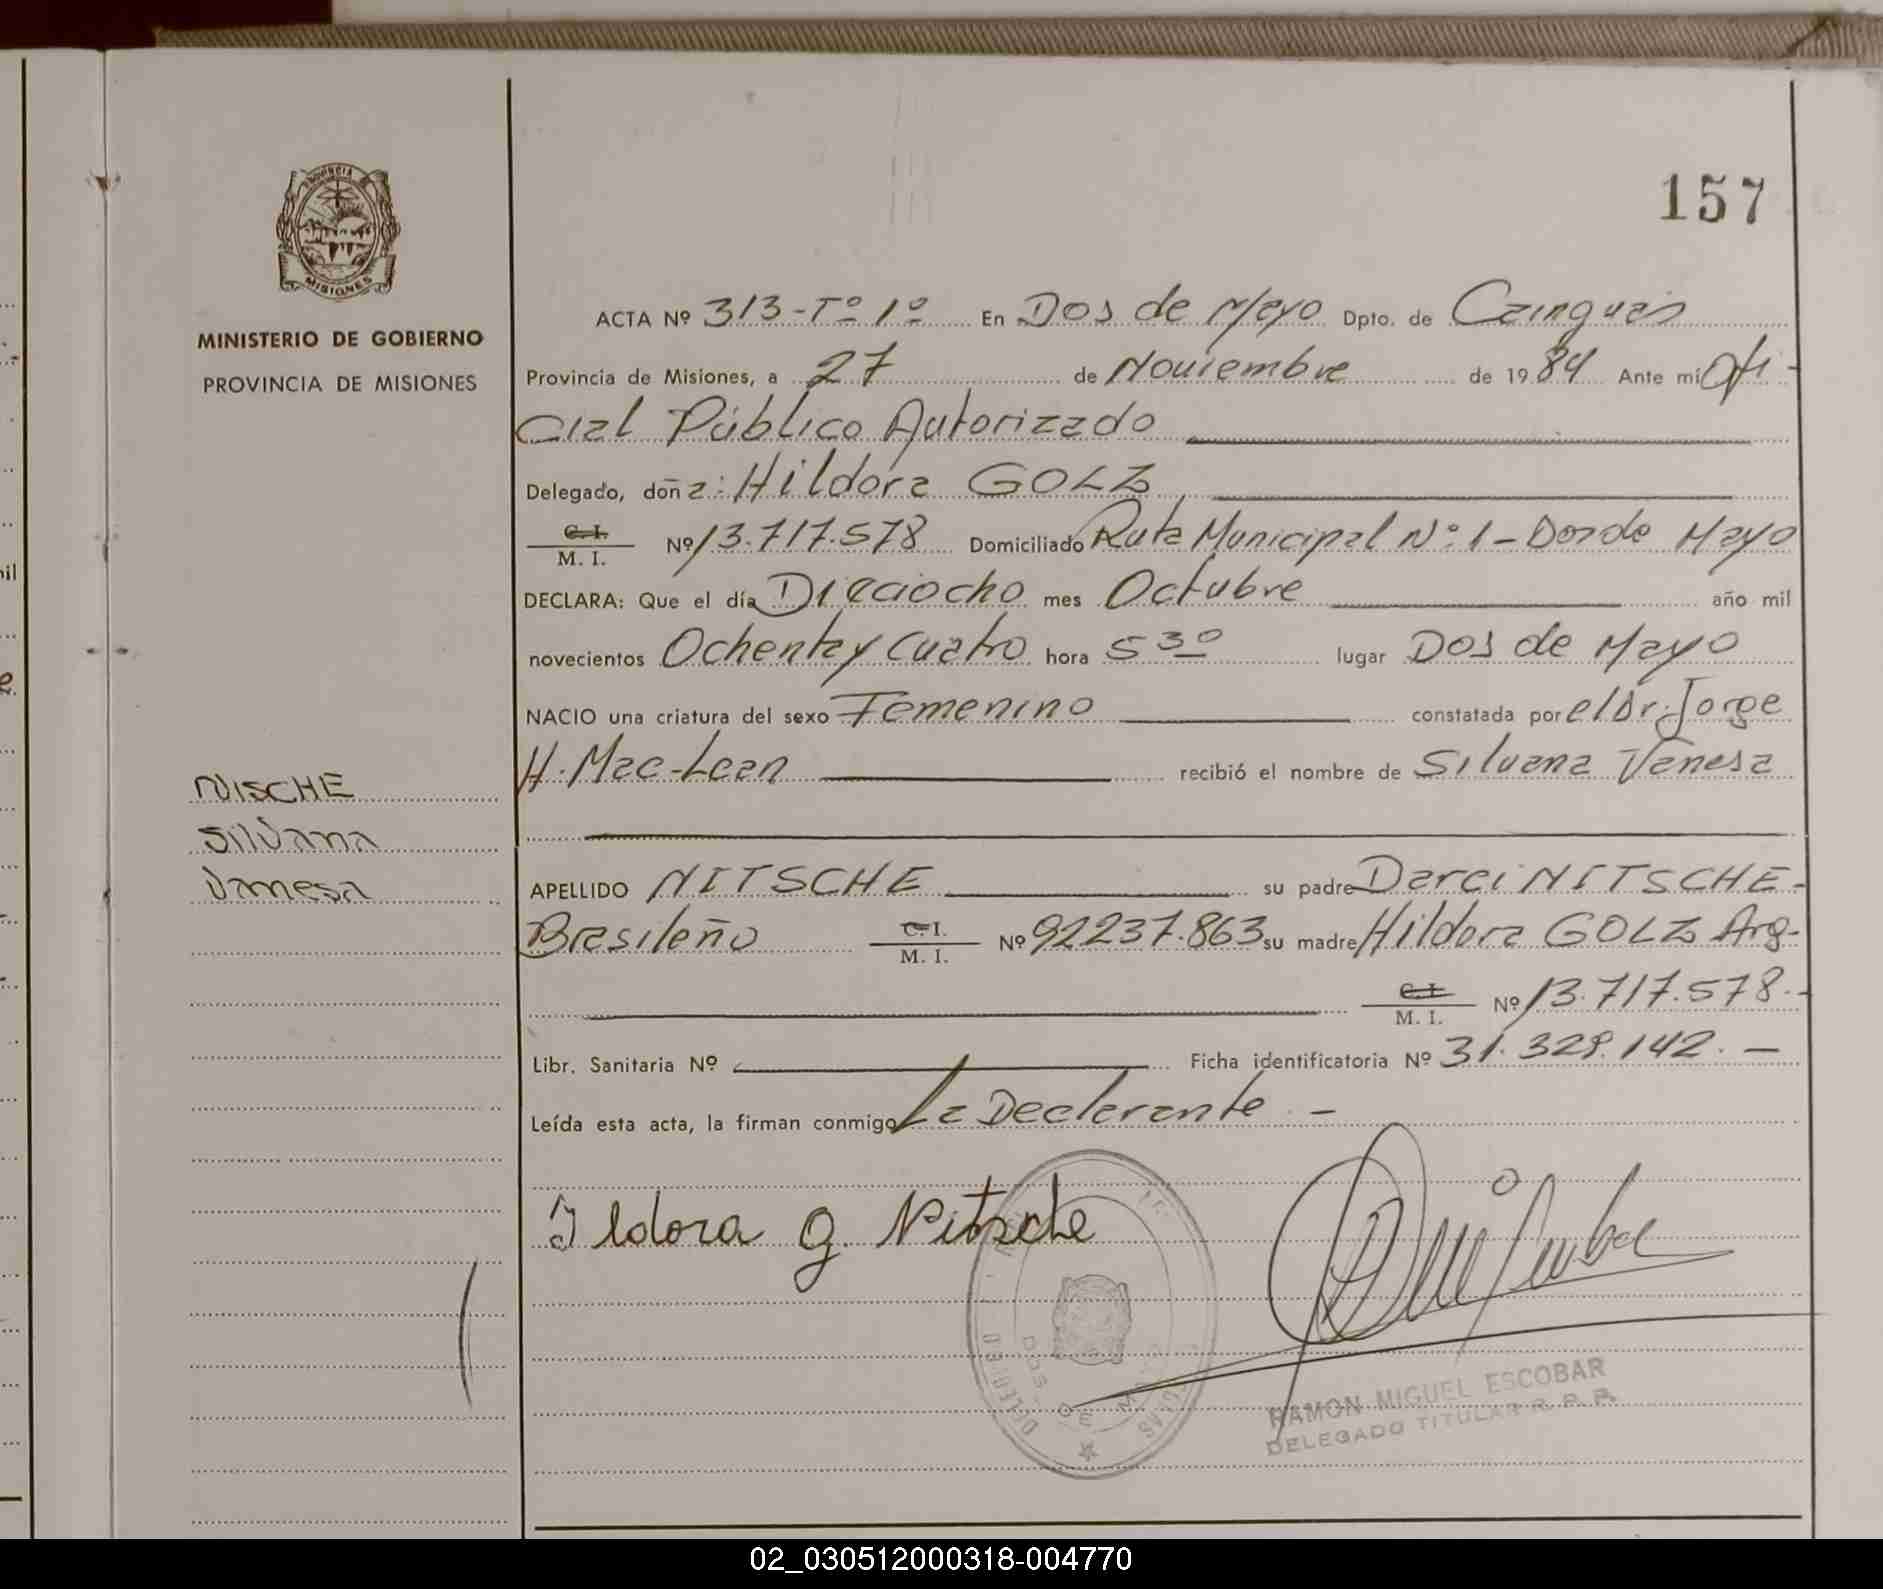 157
PROVINCIA DE
MISIONES
MINISTERIO DE GOBIERNO
PROVINCIA DE MISIONES
NISCHE
Silvana
Vanesa
ACTA Nº 313-Tº 1º En Dos de Mayo Dpto. de Cainguás
Provincia de Misiones, a 27 de Noviembre de 1984 Ante mí Ofi-
cial Público Autorizado
Delegado, doña: Hildora GOLZ
C. I.
M. I. Nº 13.717.578 Domiciliado Ruta Municipal Nº 1 - Dos de Mayo
DECLARA: Que el día Dieciocho mes Octubre año mil
novecientos Ochenta y Cuatro hora 5 30 lugar Dos de Mayo
NACIO una criatura del sexo Femenino constatada por el Dr. Jorge
H. Mac-Lean recibió el nombre de Silvana Vanesa
APELLIDO NITSCHE su padre Darci NITSCHE-
Brasileño C. I.
M. I. Nº 92237.863 su madre Hildora GOLZ Arg-
C. I.
M. I. Nº 13.717.578.-
Libr. Sanitaria Nº Ficha identificatoria Nº 31.329.142. -
Leída esta acta, la firman conmigo La Declarante . -
Ildora G. Nitsche
DOS DE MAYO
RAMON MIGUEL ESCOBAR
DELEGADO TITULAR R. P. P.
02_030512000318-004770